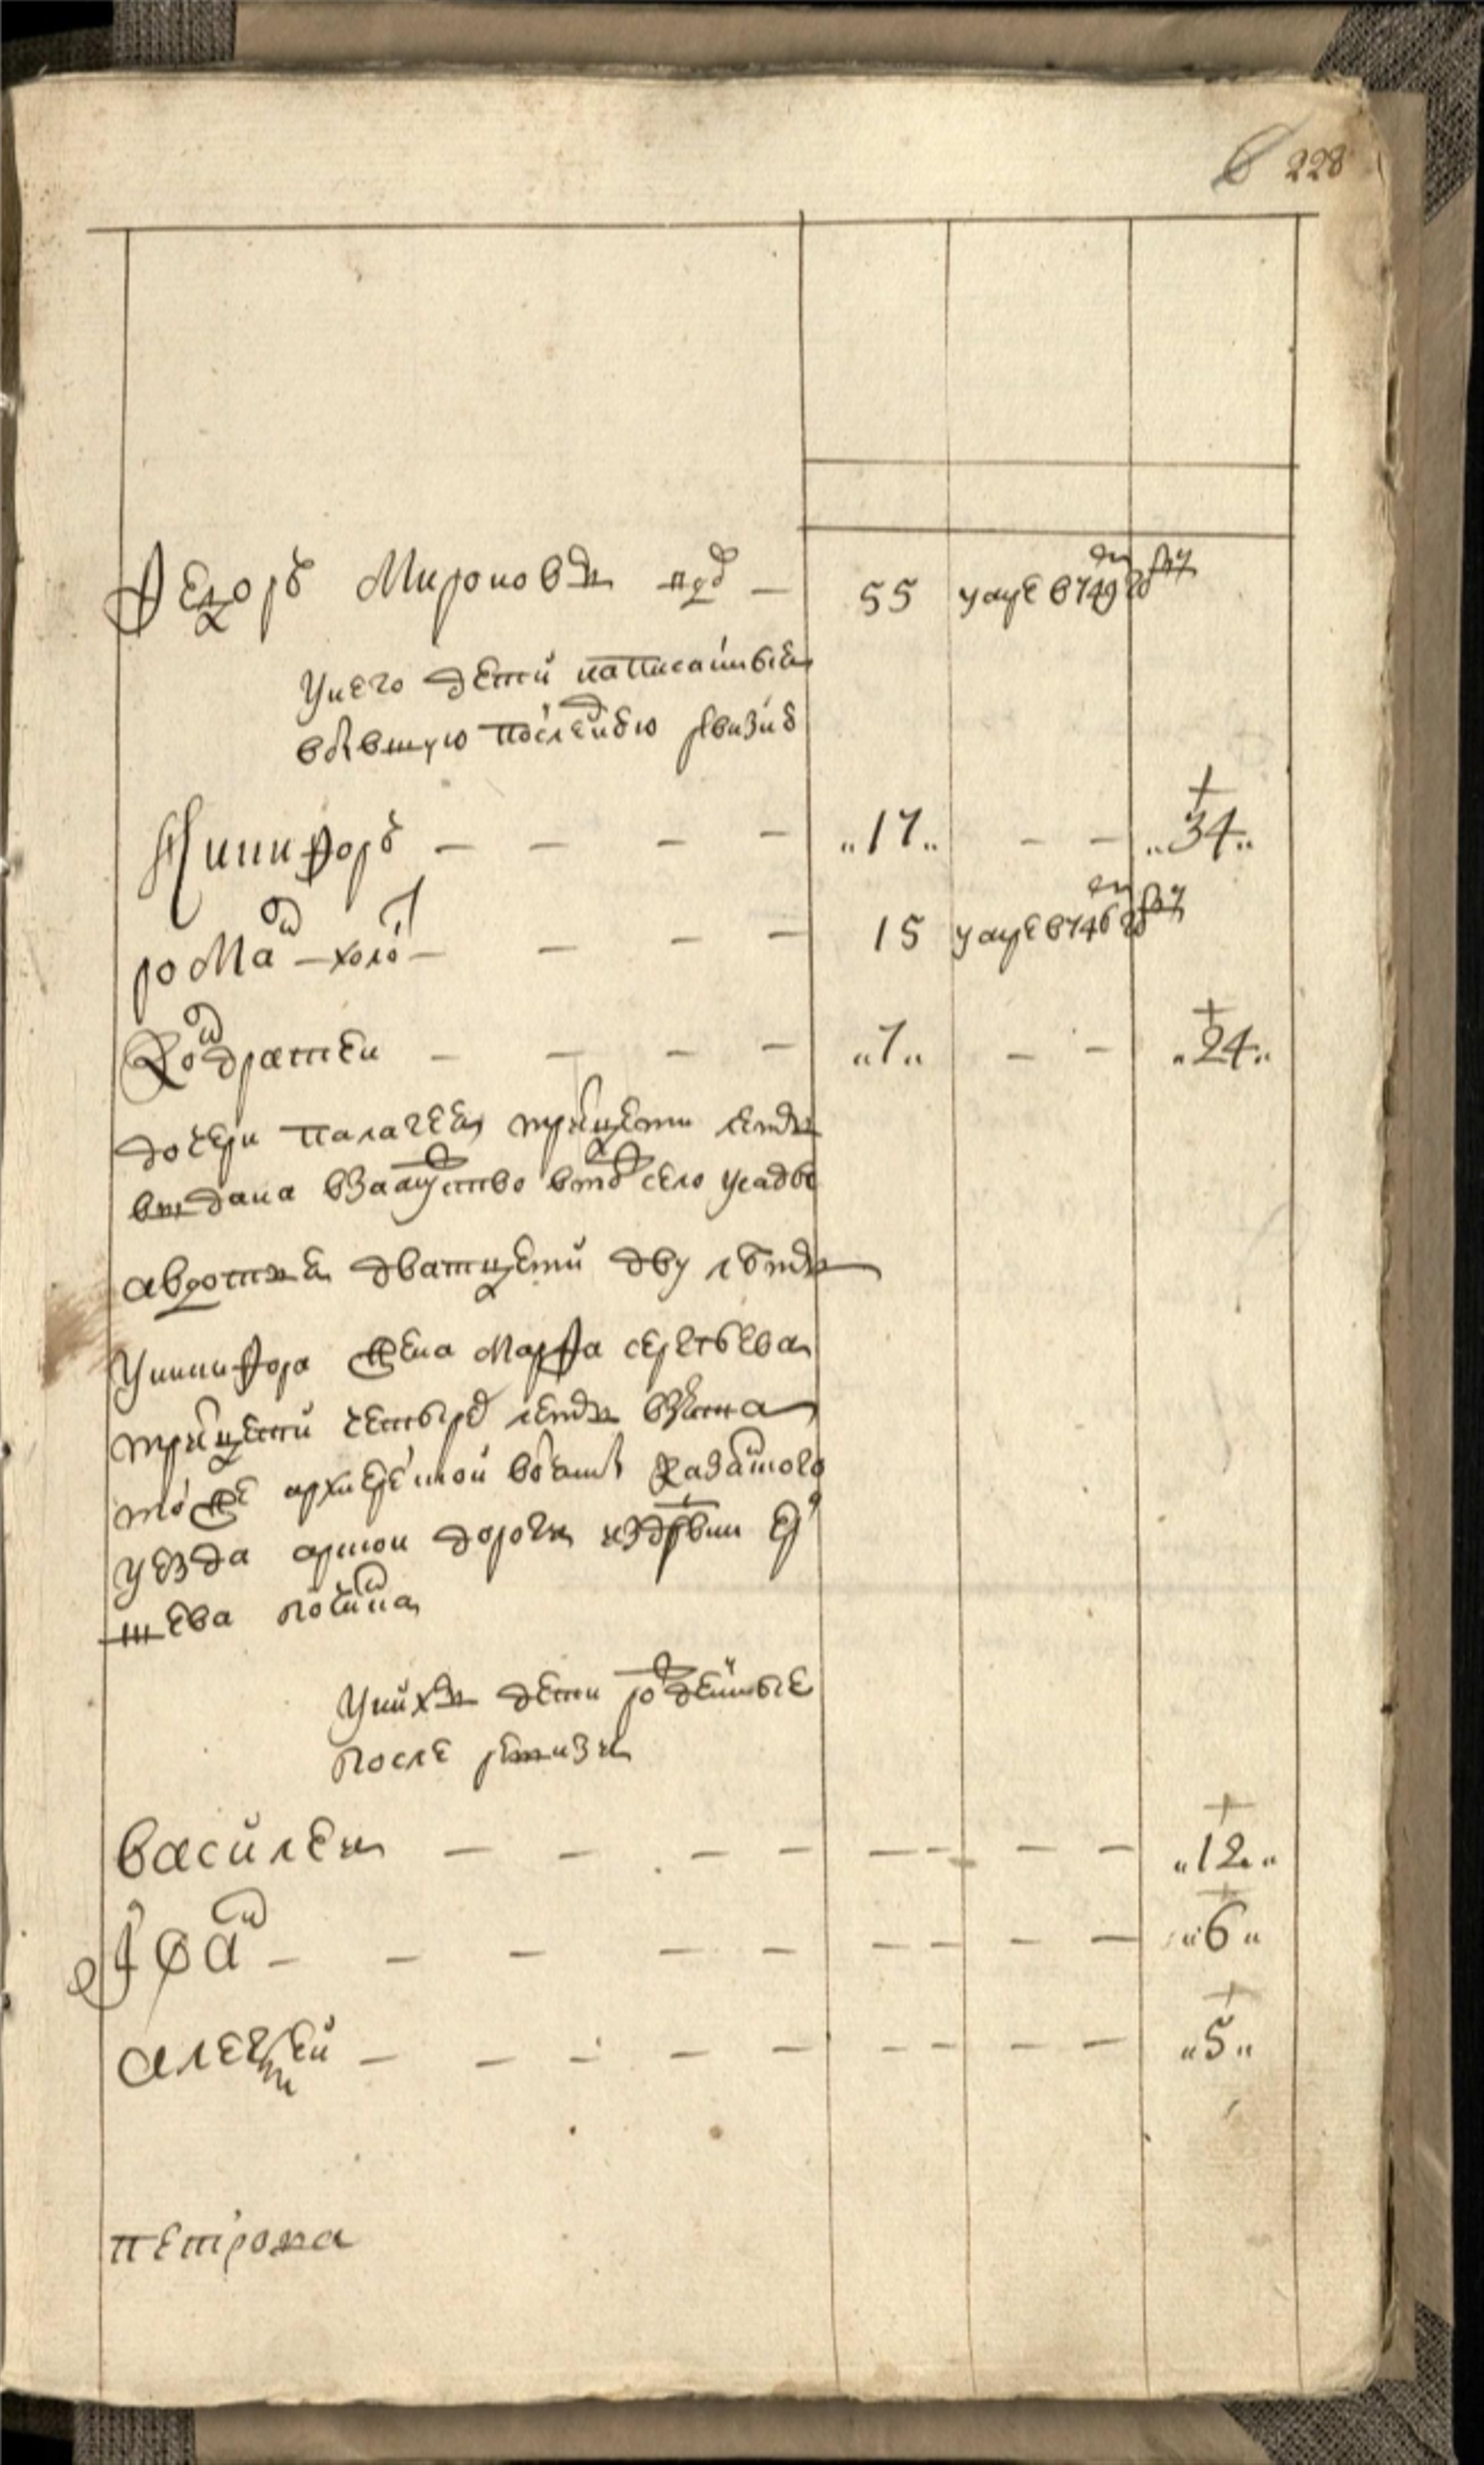 228
Ѳедоръ Мироновъ — 55 умре в 749 году
У него дети написанныя
в бывшую последнюю ревизию
Никифоръ — — — — „17„ — — „34„
рома{н} — холо{с}т — — — 15 умре в 746 году
Кондратеи — — — — „7„ — — „24„
дочери палагея тритцети летъ
выдана в замуство в то{ж} село усадбы
авдотья дватцети дву летъ
У никифора жена марфа сергеева
тритцети четырe летъ взята
то же архиерейской вотчины казанского
уезда арской дороги из дрвни
шева
У нихъ дети рожденные
после ревизи
василеи — — — — — — — — „12„
Іва{н} — — — — — — — — — „6„
алексей — — — — — — — — — „5„
петрова